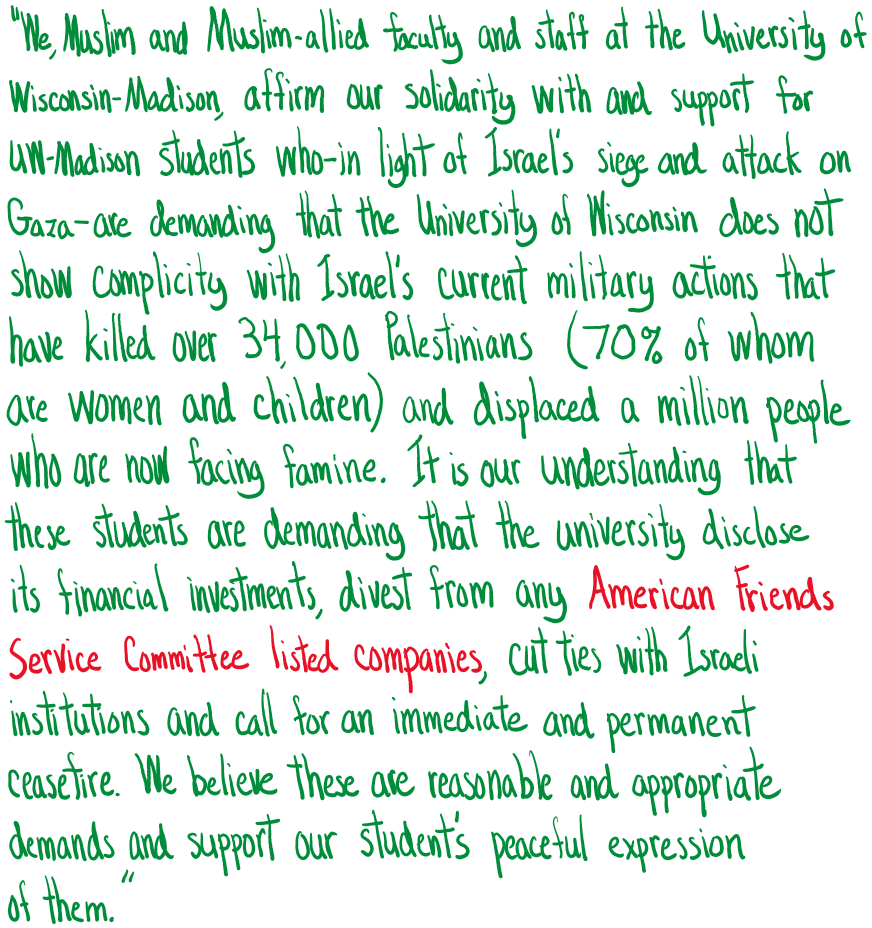 "We, Muslim and Muslim-allied faculty and staff at the University of
Wisconsin-Madison, affirm our solidarity with and support for
UW-Madison students who-in light of Israel's siege and attack on
Gaza-are demanding that the University of Wisconsin does not
show complicity with Israel's current military actions that
have killed over 34,000 Palestinians (70% of whom
are women and children) and displaced a million people
who are now facing famine. It is our understanding that
these students are demanding that the university disclose
its financial investments, divest from any American Friends
Service Committee listed companies, cut ties with Israeli
institutions and call for an immediate and permanent
ceasefire. We believe these are reasonable and appropriate
demands and support our student's peaceful expression
of them."